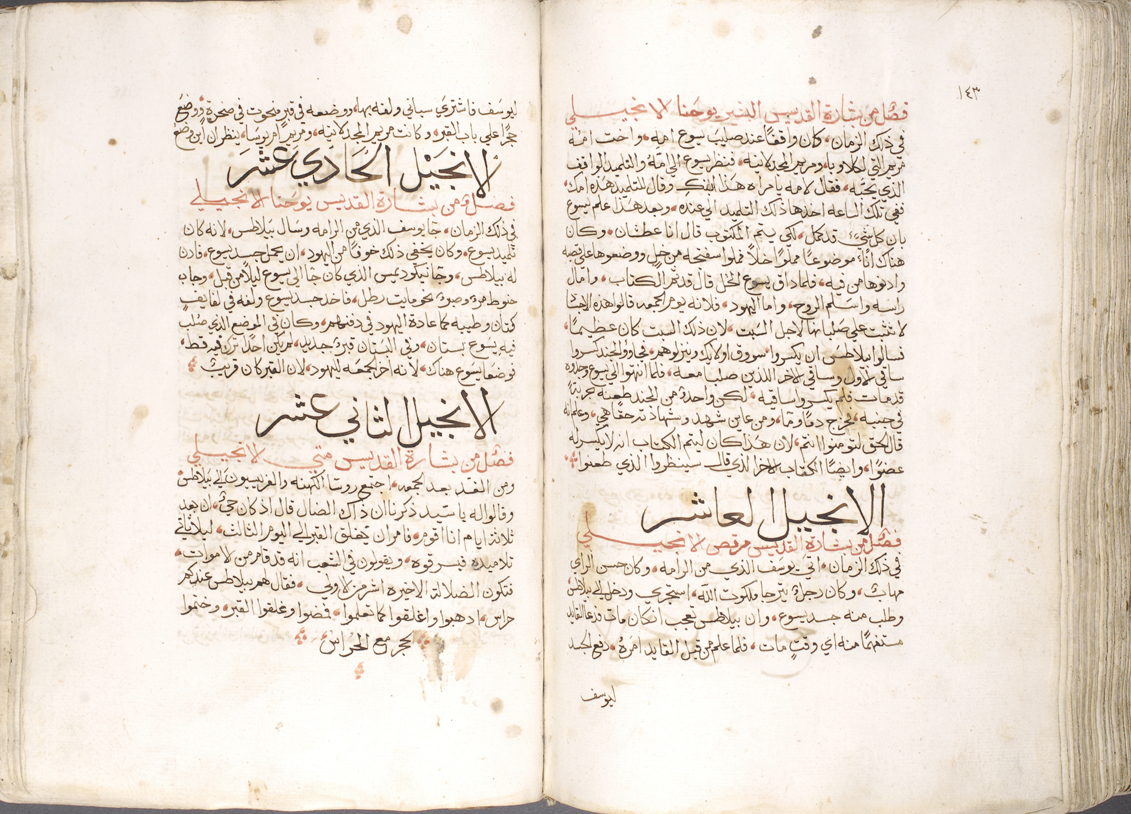 ١٤٣
فصل من بشارة القديس البشير يوحنا الانجيلي
في ذلك الزمان، وكان واقفًا عند صليب يسوع امه، واخت امه
مريم التي اكلاوبا، ومريم المجدلانيه، فنظر يسوع الى امه والتلميذ الواقف
الذي يحبه، فقال لامه يا مراه هذا ابنك، وقال للتلميذ هذه امك
ففي تلك الساعه اخذها ذلك التلميذ الى عنده، وبعد هذا علم يسوع
بان كل شيء قد كمل، لكي يتم المكتوب قال انا عطشان، وكان
هناك اناء موضوعًا مملوًا خلاً فملوا سفنجه من خل ووضعوها على قصبه
وادنوها من فيه، فلما ذاق يسوع الخل قال قد تم الكتاب، وامال
راسه واسلم الروح، واما اليهود، فلانه يوم الجمعه قالوا هذه الاجساد
لا تثبت على صلبانها لاجل السبت، لان ذلك السبت كان عظيمًا،
فسالوا بيلاطس ان يكسروا سوق اولايك وينزلوهم، فجاوو الجند كسروا
ساقي الاول وساقي الاخر اللذين صلبا معه، فلما انتهوا الى يسوع وجدوه
قد مات، فلم يكسروا ساقيه، لكن واحدًا من الجند طعنه بحربة
في جنبه، فخرج دمًا وما، ومن عاين شهد وشهادته حقًا هي، وعلم انه
قال الحق لتومنوا انتم، لان هذا كان ليتم الكتاب انه لا يكسر له
عضوًا، وايضًا الكتاب الاخر الذي قال سينظروا الذي طعنوا
الانجيل العاشر
فصل من بشارة القديس مرقص الانجيلي
في ذلك الزمان، اتى يوسف الذي من الرامه، وكان حسن الراي
مهابًا، وكان رجل يترجا ملكوت الله، استجرى ودخل الى بيلاطس
وطلب منه جسد يسوع، وان بيلاطس تعجب ان كان مات ودعا القايد
مستفهمًا منه اي وقتٍ مات، فلما علم من قبل القايد امره، دفع الجسد
ليوسف
ليوسف فاشترى سباني ولفه بها، ووضعه في قبر منحوت في صخرة، ووضع
حجرًا على باب القبر، وكانت مريم المجدلانيه، ومريم ام يوسا، ينظرن اين وضع
الانجيل الحادي عشر
فصل من بشارة القديس يوحنا الانجيلي
في ذلك الزمان، جا يوسف الذي من الرامه وسال بيلاطس، لانه كان
تلميذ يسوع، وكان يخفي ذلك خوفًا من اليهود، ان يحمل جسد يسوع، فاذن
له بيلاطس، وجا نيكوديمس الذي كان جا الى يسوع ليلاً من قبل، وجاب
حنوط مره وصبره نحو مايت رطل، فاخذ جسد يسوع ولفه في لفايف
كتان وطيبه كما عادة اليهود في دفنهم، وكان في الموضع الذي صلب
فيه يسوع بستان، وفي البستان قبرًا جديد، لم يكن احدًا ترك فيه قط،
فوضعا يسوع هناك، لانه اخر الجمعه لليهود، لان القبر كان قريبًا
الانجيل الثاني عشر
فصل من بشارة القديس متى الانجيلي
ومن الغد بعد الجمعه، اجتمع روسا الكهنه والفريسيون الى بيلاطس
وقالوا له يا سيد ذكرنا ان ذلك الضال قال اذ كان حي، ان بعد
ثلاثة ايام انا اقوم، فامر ان يغلق القبر الى اليوم الثالث، ليلا تاتي
تلاميذه فيسرقوه، ويقولون في الشعب انه قد قام من الاموات،
فتكون الضلاله الاخيره اشر من الاولى، فقال لهم بيلاطس عندكم
حراس، اذهبوا واغلقوا كما تعلموا، فمضوا وغلقوا القبر، وختموا
الحجر مع الحراس